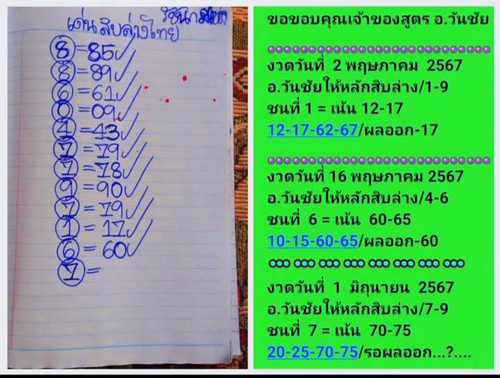 เด่นสิบล่างไทย
8=85✓
8=89✓
6=61✓
0=09✓
4=43✓
7=79✓
7=78✓
9=90✓
7=79✓
1=17✓
6=60✓
7=
ขอขอบคุณเจ้าของสูตร อ.วันชัย
งวดวันที่ 2 พฤษภาคม 2567
อ.วันชัยให้หลักสิบล่าง/1-9
ชนที่ 1 = เน้น 12-17
12-17-62-67/ผลออก-17
งวดวันที่ 16 พฤษภาคม 2567
อ.วันชัยให้หลักสิบล่าง/4-6
ชนที่ 6 = เน้น 60-65
10-15-60-65/ผลออก-60
งวดวันที่ 1 มิถุนายน 2567
อ.วันชัยให้หลักสิบล่าง/7-9
ชนที่ 7 = เน้น 70-75
20-25-70-75/รอผลออก...?....